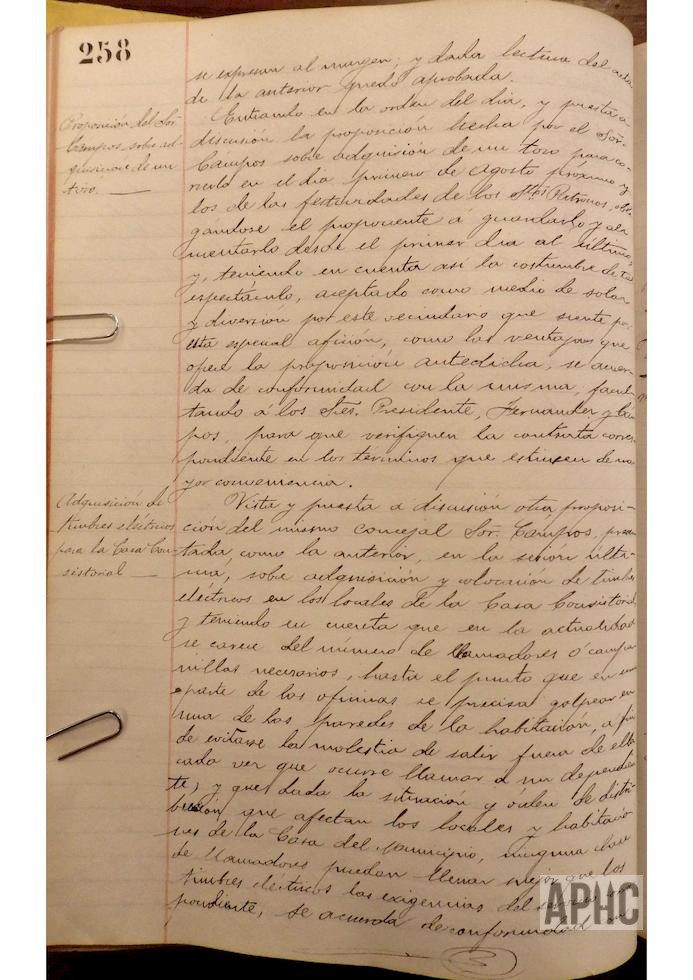 258
se expresan al margen; y dada lectura del acta
de la anterior quedó aprobada.
Proposición del Sor.
Campos sobre ad-
quisición de un
toro.
Entrando en la orden del dia, y puesta a
discusión la proposición hecha por el Sor.
Campos sobre adquisición de un toro para co-
rrerlo en el dia primero de Agosto próximo y
los de las festividades de los Stos Patronos, obli-
gándose el proponente á guardarlo y ali-
mentarlo desde el primer dia al último
y, teniendo en cuenta asi la costumbre de tal
espectáculo, aceptado como medio de solaz
y diversión por este vecindario que siente por
esta especial afición, como las ventajas que
ofrece la proposición antedicha, se acuer-
da de conformidad con la misma, facul-
tando á los Sres. Presidente, Fernandez y Cam-
pos, para que verifiquen la contrata corres-
pondiente en los terminos que estimen de ma-
yor conveniencia.
Adquisición de
timbres eléctricos
para la Casa Con-
sistorial
Vista y puesta á discusión otra proposi-
ción del mismo concejal Sor. Campos, presen-
tada, como la anterior, en la sesión últi-
ma, sobre adquisición y colocación de timbres
eléctricos en los locales de la Casa Consistorial,
y teniendo en cuenta que en la actualidad
se carece del número de llamadores ó campa-
nillas necesarios, hasta el punto que en
parte de las oficinas se precisa golpear en
una de las paredes de la habitación, a fin
de evitarse la molestia de salir fuera de ella
cada vez que ocurre llamar a un dependien-
te, y que, dada la situación y órden de distri-
bución que afectan los locales y habitacio-
nes de la Casa del Municipio, ninguna clase
de llamadores pueden llenar mejor que los
timbres eléctricos las exigencias del servicio
pondiente, se acuerda de conformidad
APHC